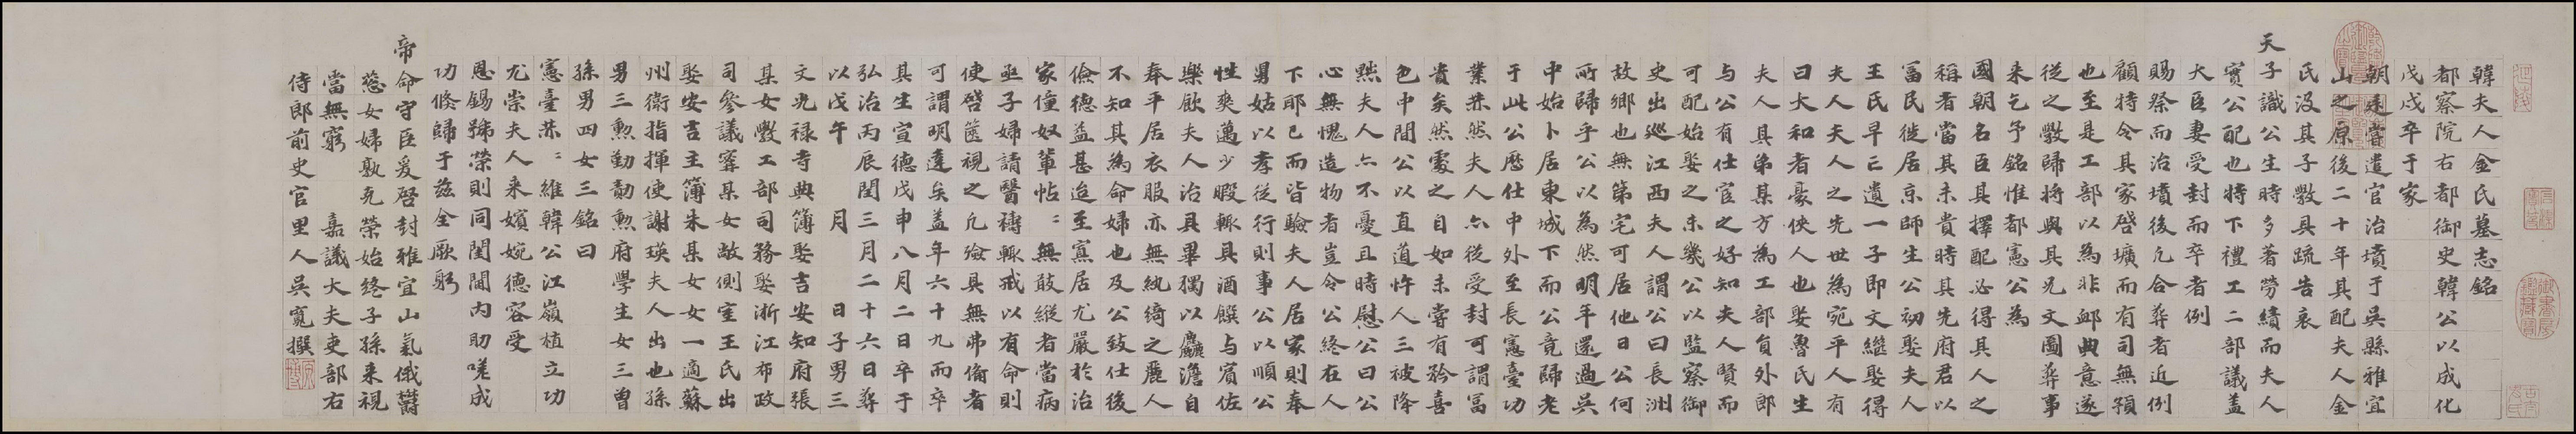 韓夫人金氏墓志銘
都察院右都御史韓公以成化
戊戌卒于家
朝廷嘗遣官治墳于吳縣雅宜
山之原後二十年其配夫人金
氏沒其子斅具疏告哀
天子識公生時多著勞績而夫人
實公配也特下禮工二部議蓋
大臣妻受封而卒者例
賜祭而治墳後凡合葬者近例
顧特令其家啓壙而有司無預
也至是工部以為非卹典意遂
從之斅歸將與其兄文圖葬事
來乞予銘惟都憲公為
國朝名臣其擇配必得其人之
稱者當其未貴時其先府君以
富民徙居京師生公初娶夫人
王氏早亡遺一子即文繼娶得
夫人夫人之先世為宛平人有
曰大和者豪俠人也娶魯氏生
夫人具弟某方為工部員外郎
與公有仕宦之好知夫人賢而
可配始娶之未幾公以監察御
史出巡江西夫人謂公曰長洲
故鄉也無第宅可居他日公何
所歸乎公以為然明年還過吳
中始卜居東城下而公竟歸老
于此公歷仕中外至長憲臺功
業赫然夫人亦從受封可謂富
貴矣然處之自如未嘗有矜喜
色中間公以直道忤人三被降
黜夫人亦不憂且時慰公曰公
心無愧造物者豈令公終在人
下耶已而皆驗夫人居家則奉
舅姑以孝從行則事公以順公
性爽邁少暇輒具酒饌与賓佐
樂飲夫人治具畢獨以麤澹自
奉平居衣服亦無紈綺之麗人
不知其為命婦也及公致仕後
儉德益甚迨至寡居尤嚴於治
家僮奴輩帖〻無敢縱者當病
亟子婦請醫禱輒戒以有命則
使啓篋視之凡殮具無弗備者
可謂明達矣蓋年六十九而卒
其生宣德戊申八月二日卒于
弘治丙辰閏三月二十六日葬
以戊午　　月　　日子男三
文光祿寺典簿娶吉安知府張
某女斅工部司務娶浙江布政
司參議寗某女敞側室王氏出
娶安吉主簿朱某女女一適蘇
州衛指揮使謝瑛夫人出也孫
男三勲勤勣勲府學生女三曾
孫男四女三銘曰
憲臺赫〻維韓公江嶺植立功
尤崇夫人來嬪婉德容受
恩錫號榮則同閨閫內助嗟成
功倏歸于茲全厥躬
帝命守臣爰啓封雅宜山氣俄鬱
葱女婦孰克榮始終子孫來視
當無窮　　嘉議大夫吏部右
侍郎前史官里人吳寬撰